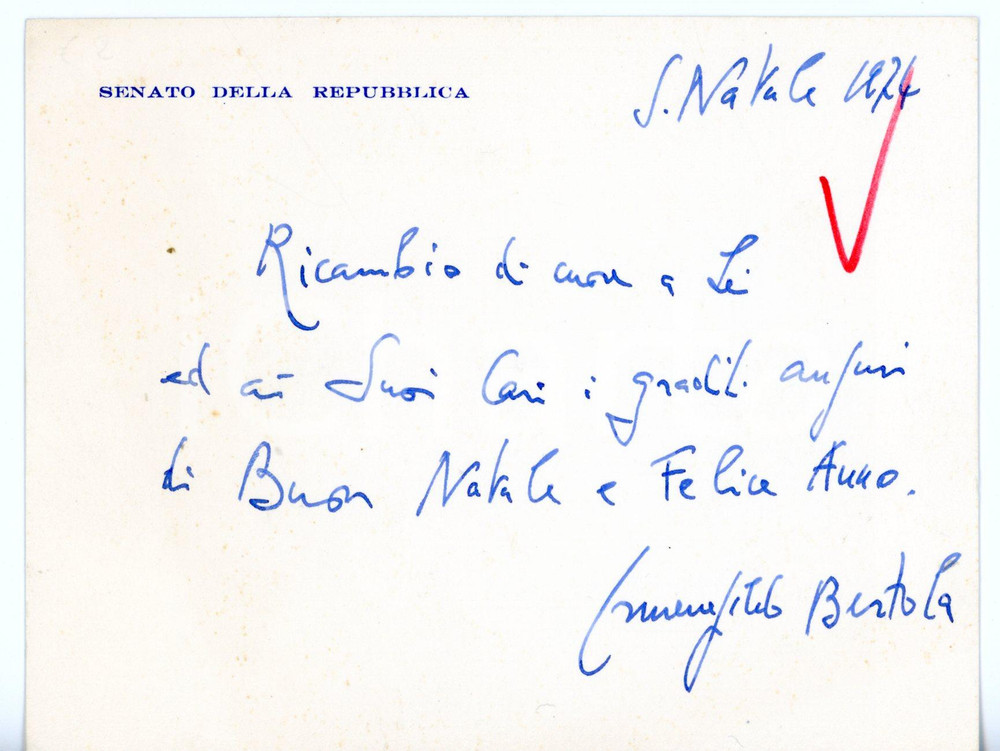 SENATO DELLA REPUBBLICA
S. Natale 1974
Ricambio di cuore a Lei
ed ai Suoi Cari i graditi auguri
di Buon Natale e Felice Anno.
Ermenegildo Bertola